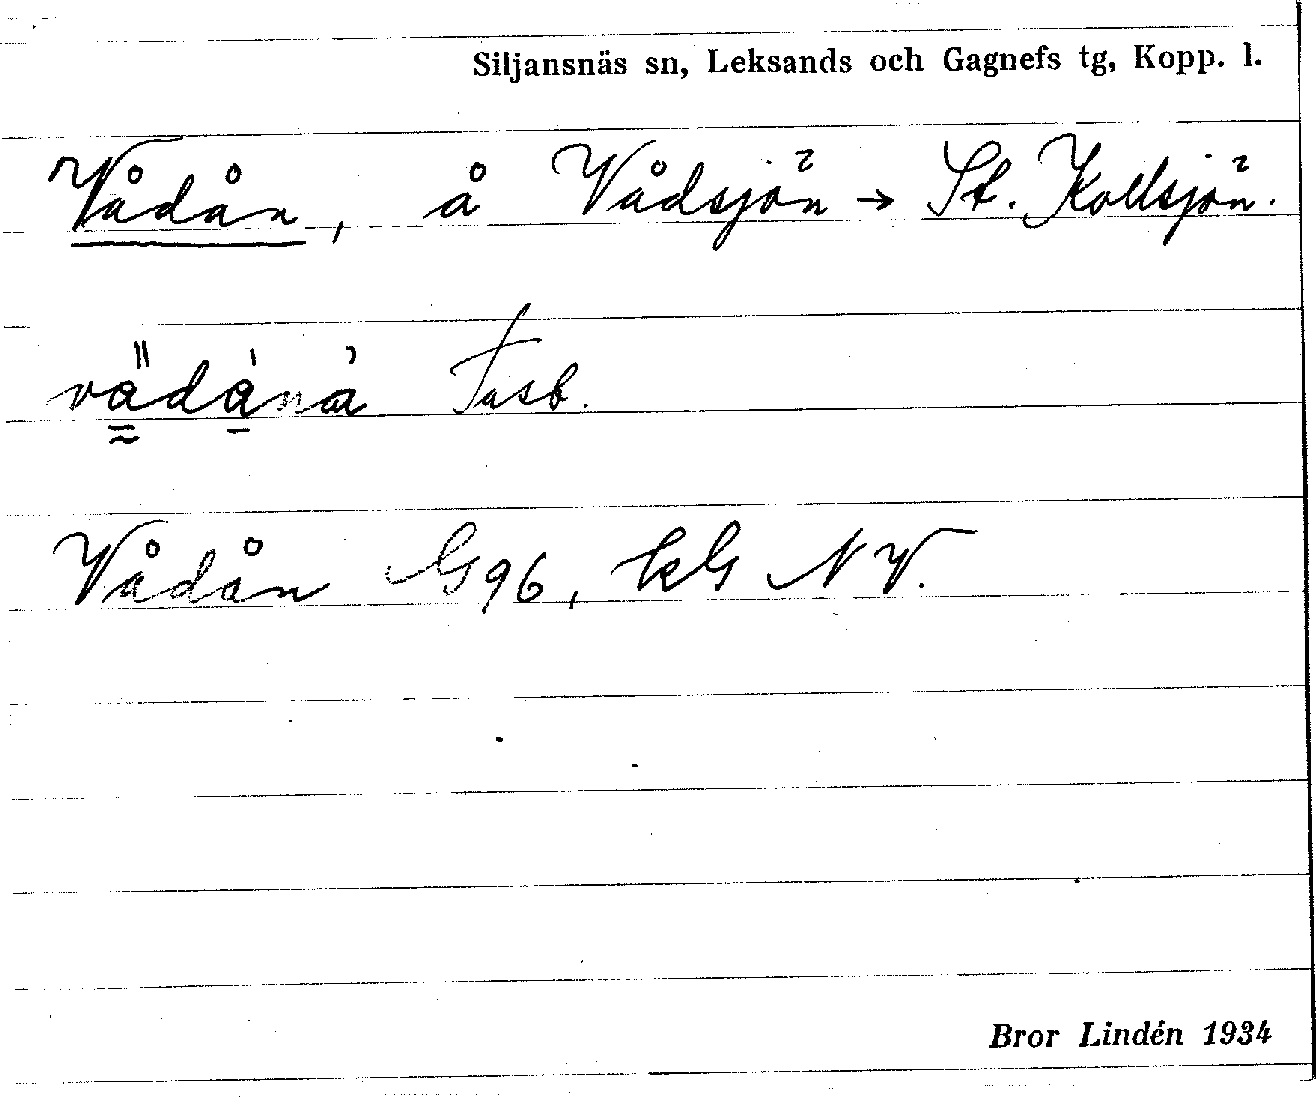 Siljansnäs sn, Leksands och Gagnefs tg, Kopp. l.
Vådån, å Vådsjön → St. Kollsjön.
vådåna Fasb.
Vådån G96, kG NV.
Bror Lindén 1934